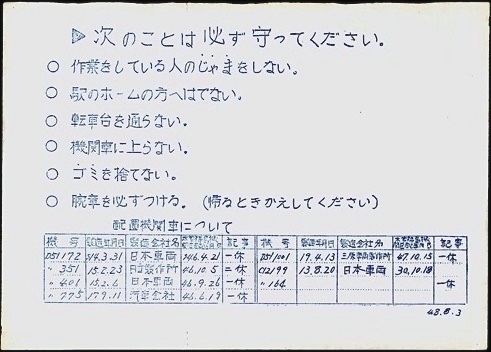 ▷ 次のことは必ず守ってください。
○ 作業をしている人のじゃまをしない。
○ 駅のホームの方へはでない。
○ 転車台を通らない。
○ 機関車に上らない。
○ ゴミを捨てない。
○ 腕章を必ずつける。(帰るときかえしてください)
配置機関車について
機号 製造年月日 製造会社名 記事 機号 製造年月日 製造会社名 記事
D51172 14.3.31 日本車両 46.4.21 一休 D51001 19.4.13 47.10.15 一休
〃 351 15.2.23 日立製作所 46.10.5 二休 C12199 13.8.20 日本車両 30.10.18
〃 401 15.2.6 日本車両 46.9.26 一休 〃 164 一休
〃 775 17.9.11 汽車会社 46.6.19 一休
48.8.3